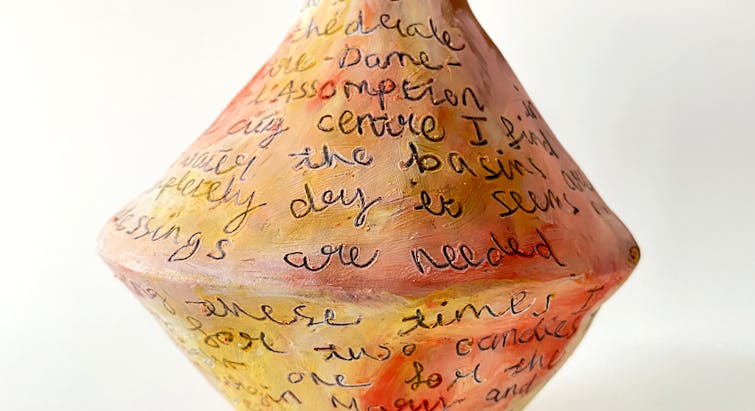 thédrale
re-Dame-
L'Assomption in
city centre I find
water the basins are
pletely dry it seems
lessings are needed
ng these times I
for two candles
one for the
Mary and